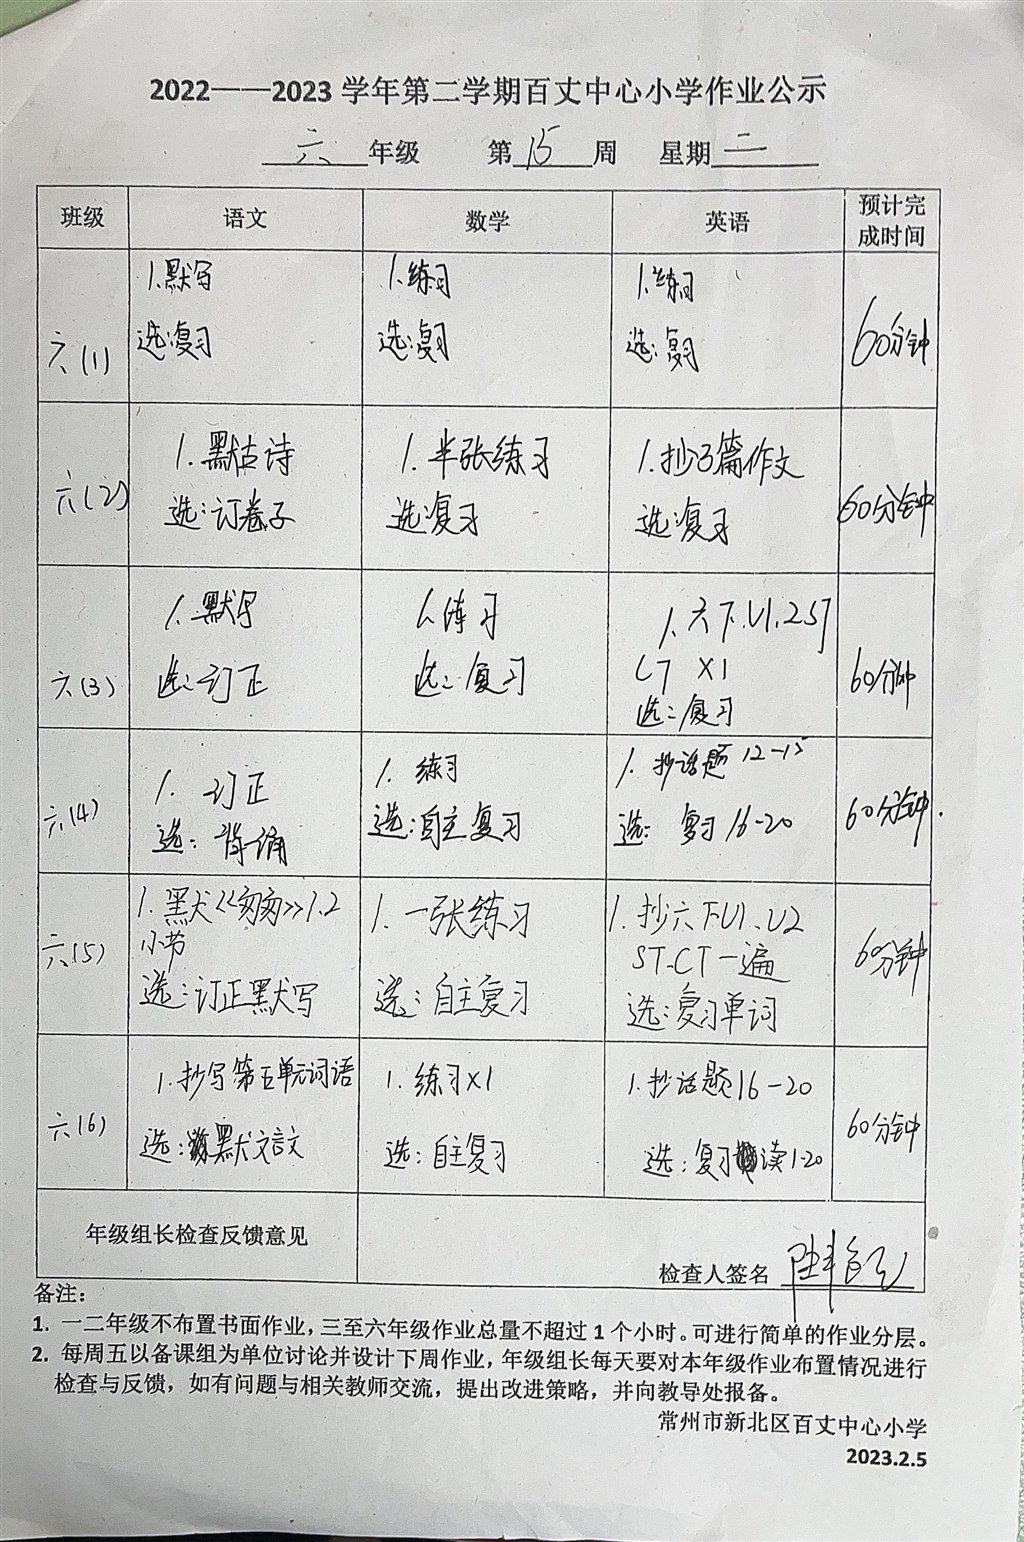 2022——2023 学年第二学期百丈中心小学作业公示
六 年级 第 15 周 星期 二
班级 语文 数学 英语 预计完成时间
六(1)
1.默写
选:复习
1.练习
选:复习
1.练习
选:复习
60分钟
六(2)
1.默古诗
选:订卷子
1.半张练习
选:复习
1.抄3篇作文
选:复习
60分钟
六(3)
1.默写
选:订正
1.练习
选:复习
1.六下.U1.2 ST
CT X1
选:复习
60分钟
六(4)
1. 订正
选:背诵
1. 练习
选:自主复习
1. 抄话题 12-15
选: 复习 16-20
60分钟.
六(5)
1.默《匆匆》1.2
小节
选:订正默写
1.一张练习
选:自主复习
1.抄六下U1、U2
ST.CT一遍
选:复习单词
60分钟
六(6)
1.抄写第五单元词语
选:默文言文
1.练习X1
选:自主复习
1.抄话题16-20
选:复习读1-20
60分钟
年级组长检查反馈意见
检查人签名
备注:
1. 一二年级不布置书面作业,三至六年级作业总量不超过 1 个小时。可进行简单的作业分层。
2. 每周五以备课组为单位讨论并设计下周作业,年级组长每天要对本年级作业布置情况进行
检查与反馈,如有问题与相关教师交流,提出改进策略,并向教导处报备。
常州市新北区百丈中心小学
2023.2.5